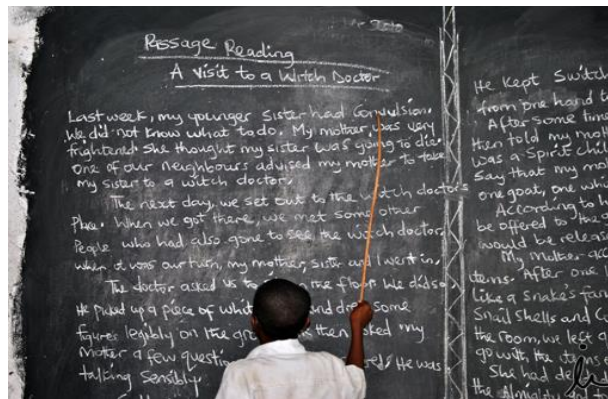 Passage Reading
A Visit to a Witch Doctor
Last week, my younger sister had Convulsion.
We did not know what to do. My mother was very
frightened. She thought my sister was going to die.
one of our neighbours advised my mother to take
my sister to a witch doctor.
The next day, we set out to the witch doctors
Place. When we got there, we met some other
People who had also gone to see the witch doctor.
when it was our turn, my mother, sister and I went in.
The doctor asked us to the floor. We did so.
He picked up a piece of and some
figures legibly on the then asked my
Moter a few He was
talking Sensibly.
He kept Switch
from one hand t
After some time
then told my moth
was a Spirit chil
Say that my mo
one goat, one whi
According to h
be offered to the S
would be relea
My Mother ac
items. After one
like a snake's fa
Snail Shells and C
the room, we left
go with the items
She had de
the Almighty and